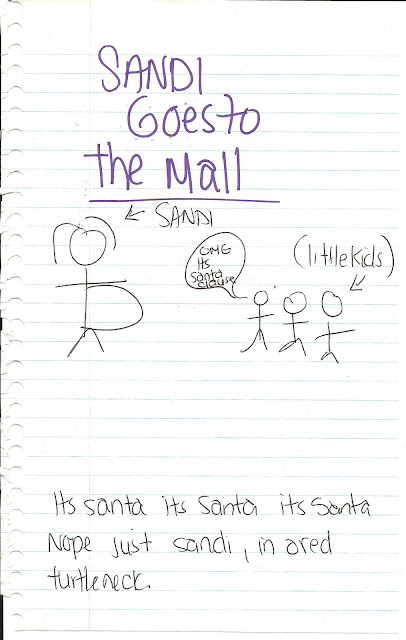 SANDI
Goes to
the Mall
← SANDI
OMG
Its
Santa
clause
(little kids)
Its santa its Santa its Santa
Nope just sandi, in a red
turtleneck.